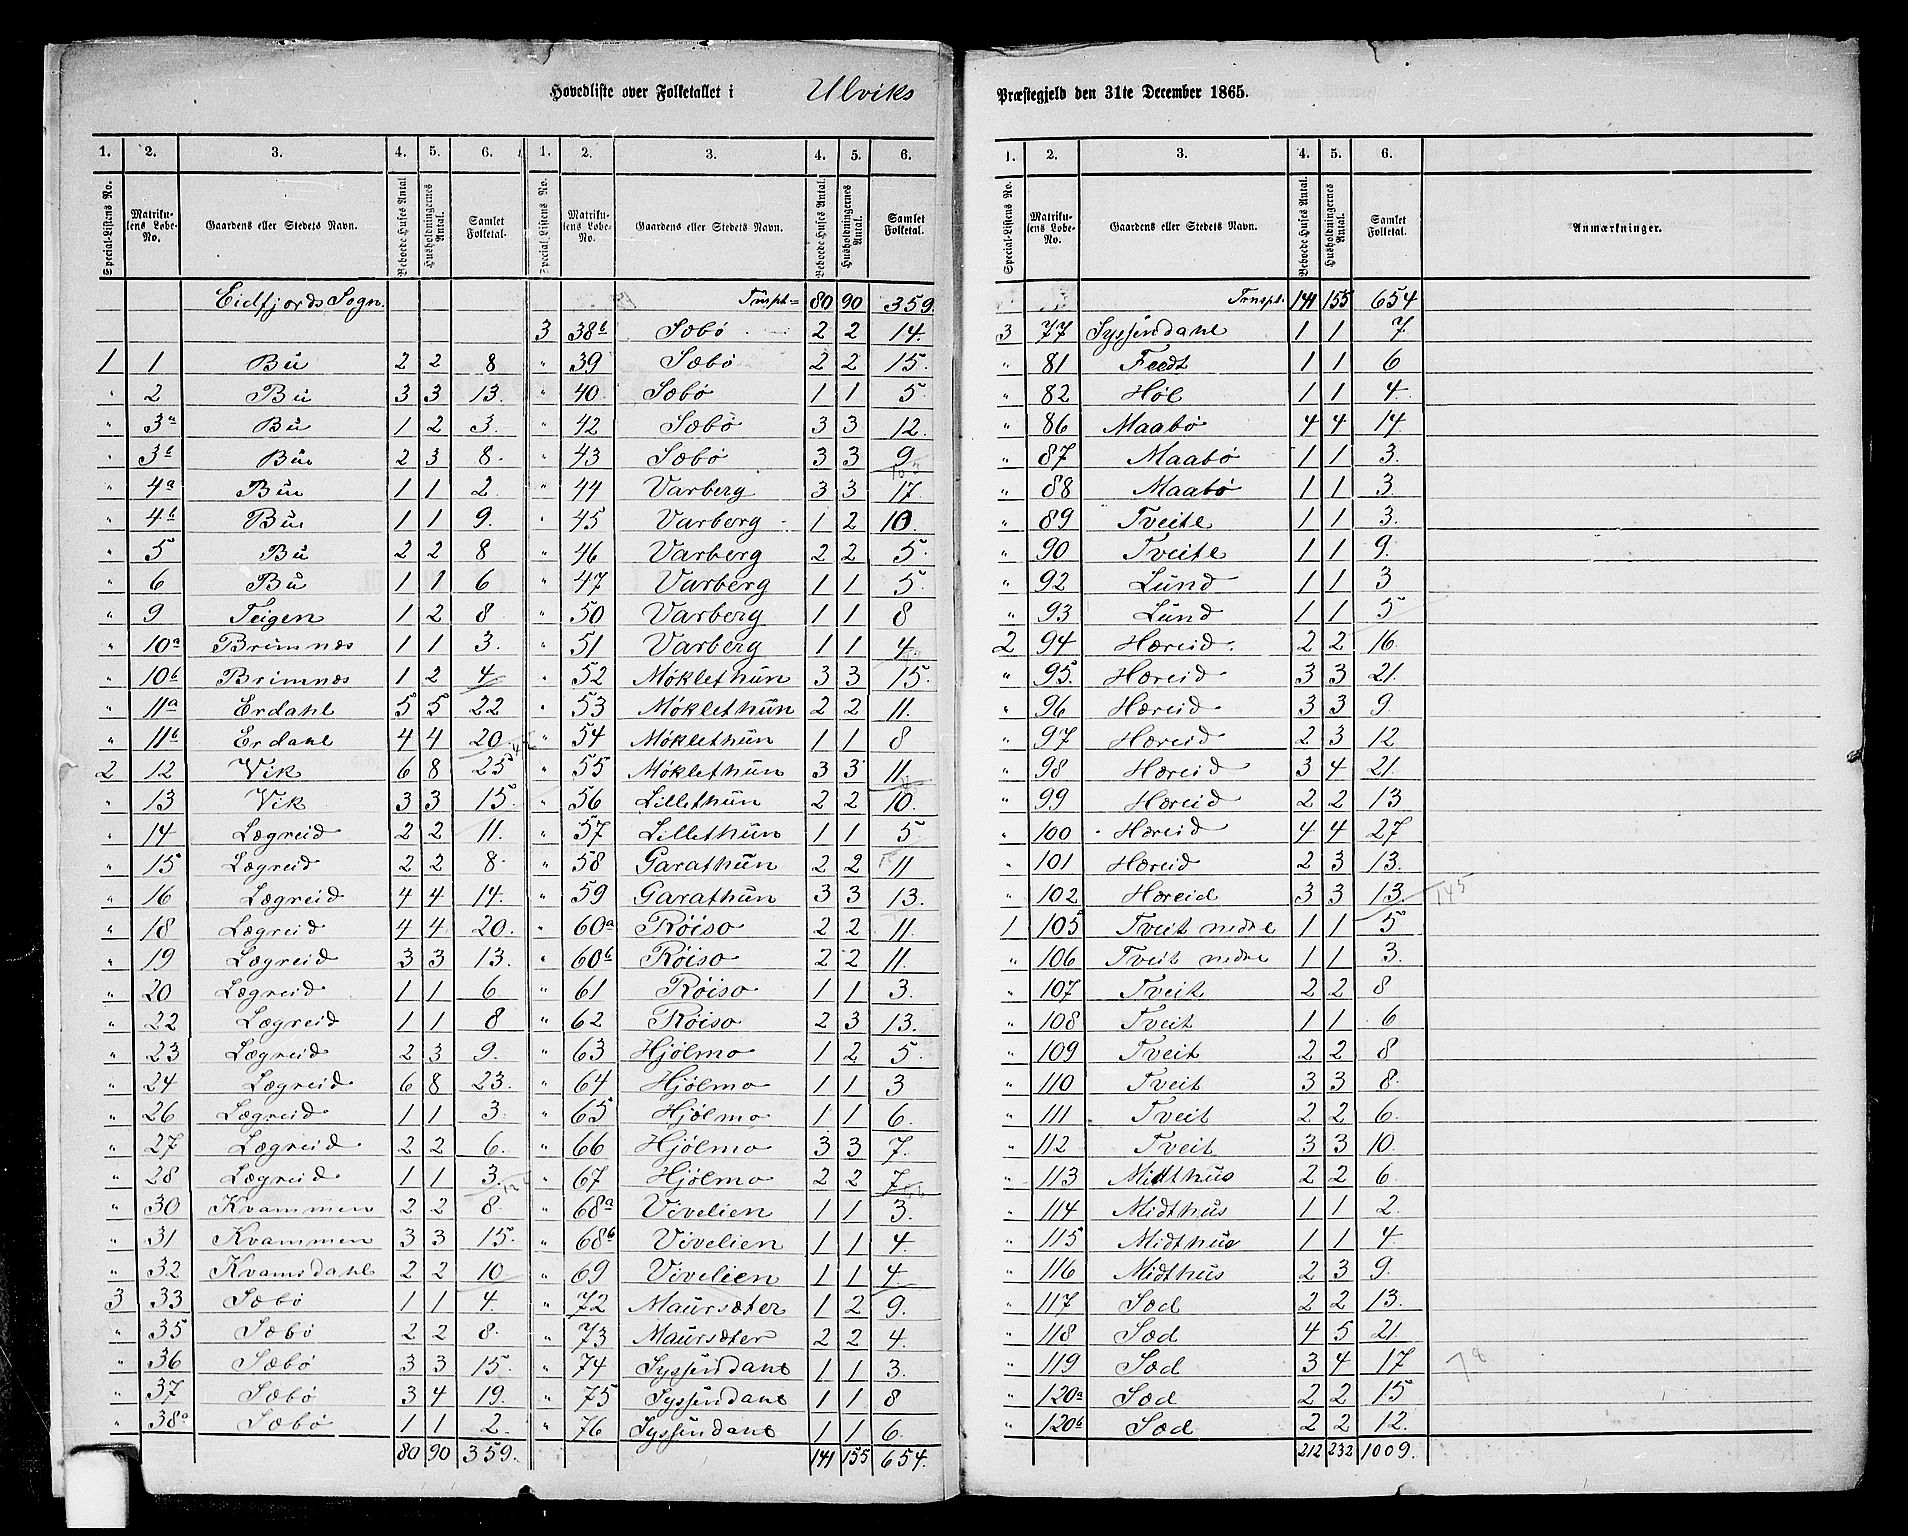 Hovedliste over Folketallet i Ulviks
1. 2. 3. 4. 5. 6. 1. 2. 3. 4. 5. 6.
Special-Listens No. Matrikulens Løbe-No. Gaardens eller Stedets Navn. Beboede Huses Antal Husholdningernes Antal. Samlet Folketal. Special-Listens No. Matrikulens Løbe-No. Gaardens eller Stedets Navn. Beboede Huses Antal. Husholdningernes Antal. Samlet Folketal.
Eidfjords Sogn.
1 1 Bu 2 2 8
" 2 Bu 3 3 13.
" 3a Bu 1 2 3.
" 3b Bu 2 3 8.
" 4a Bu 1 1 2
" 4b Bu 1 1 9.
" 5 Bu 2 2 8
" 6 Bu 1 1 6
" 9 Teigen 1 2 8
" 10a Brimnæs 1 1 3.
" 10b Brimnæs 1 2 4
" 11a Erdahl 5 5 22
" 11b Erdahl 4 4 20
2 12 Vik 6 8 25
" 13 Vik 3 3 15.
" 14 Lægreid 2 2 11.
" 15 Lægreid 2 2 8.
" 16 Lægreid 4 4 14.
" 18 Lægreid 4 4 20.
" 19 Lægreid 3 3 13.
" 20 Lægreid 1 1 6
" 22 Lægreid 1 1 8
" 23 Lægreid 2 3 9.
" 24 Lægreid 6 8 23.
" 26 Lægreid 1 1 3.
" 27 Lægreid 2 2 6.
" 28 Lægreid 1 1 3.
" 30 Kvammen 2 2 8.
" 31 Kvammen 3 3 15.
" 32 Kvamsdahl 2 2 10
3 33 Sæbø 1 1 4.
" 35 Sæbø 2 2 8.
" 36 Sæbø 3 3 15.
" 37 Sæbø 3 4 19.
" 38a Sæbø 1 1 2.
80 90 359.
Trnspt= 80 90 359.
3 38b Sæbø 2 2 14.
" 39 Sæbø 2 2 15.
" 40. Sæbø 1 1 5
" 42 Sæbø 3 3 12.
" 43 Sæbø 3 3 9
" 44 Varberg 3 3 17
" 45 Varberg 1 2 10.
" 46 Varberg 2 2 5.
" 47 Varberg 1 1 5.
" 50 Varberg 1 1 8
" 51 Varberg 1 1 4
" 52 Møklethun 3 3 15.
" 53 Møklethun 2 2 11.
" 54 Møklethun 1 1 8
" 55 Møklethun 3 3 11
" 56 Lillethun 2 2 10.
" 57 Lillethun 1 1 5
" 58 Garathun 2 2 11
" 59 Garathun 3 3 13.
" 60a Røiso 2 2 11.
" 60b Røiso 2 2 11.
" 61 Røiso 1 1 3.
" 62 Røiso 2 3 13.
" 63 Hjølmo 1 2 5.
" 64 Hjølmo 1 1 3
" 65 Hjølmo 1 1 6.
" 66 Hjølmo 3 3 7.
" 67 Hjølmo 2 2 7
" 68a Vivelien 1 1 3.
" 68b Vivelien 1 1 4.
" 69 Vivelien 1 1 4.
" 72 Maursæter 1 2 9.
" 73 Maursæter 2 2 4.
" 74 Syssendahl 1 1 3.
" 75 Syssendahl 1 1 8
" 76 Syssendahl 1 1 6.
141 155 654.
Præstegjeld den 31te December 1865.
1. 2. 3. 4. 5. 6.
Special-Listens No. Matrikulens Løbe-No. Gaardens eller Stedets Navn. Beboede Huses Antal. Husholdningernes Antal. Samlet Folketal. Anmærkninger.
Trnspt. 141 155 654
3 77 Syssendahl 1 1 7
" 81 Feedt 1 1 6
" 82 Høl 1 1 4
" 86 Maabø 4 4 14
" 87 Maabø 1 1 3.
" 88 Maabø 1 1 3.
" 89 Tveite 1 1 3.
" 90 Tveite 1 1 9.
" 92 Lund 1 1 3
" 93 Lund 1 1 5
2 94 Hæreid. 2 2 16
" 95. Hæreid 3 3 21.
" 96 Hæreid 3 3 9.
" 97 Hæreid 2 3 12
" 98 Hæreid 3 4 21.
" 99 Hæreid 2 2 13
" 100 Hæreid 4 4 27
" 101 Hæreid 2 3 13.
" 102 Hæreid 3 3 13. 145
1 105 Tveit nedre 1 1 5
" 106 Tveit nedre 1 1 3.
" 107 Tveit 2 2 8
" 108 Tveit 1 1 6
" 109 Tveit 2 2 8
" 110 Tveit 3 3 8.
" 111 Tveit 2 2 6.
" 112 Tveit 3 3 10.
" 113 Midthus 2 2 6.
" 114 Midthus 1 1 2.
" 115 Midthus 1 1 4.
" 116 Midthus 2 3 9.
" 117 Sæd 2 2 13.
" 118 Sæd 4 5 21.
" 119 Sæd 3 4 17 78
" 120a Sæd 2 2 15
" 120b Sæd 2 2 12.
212 232 1009.